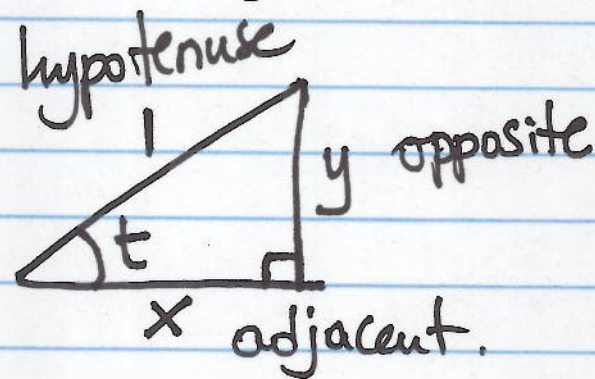 hypotenuse
1
y opposite
t
x adjacent.